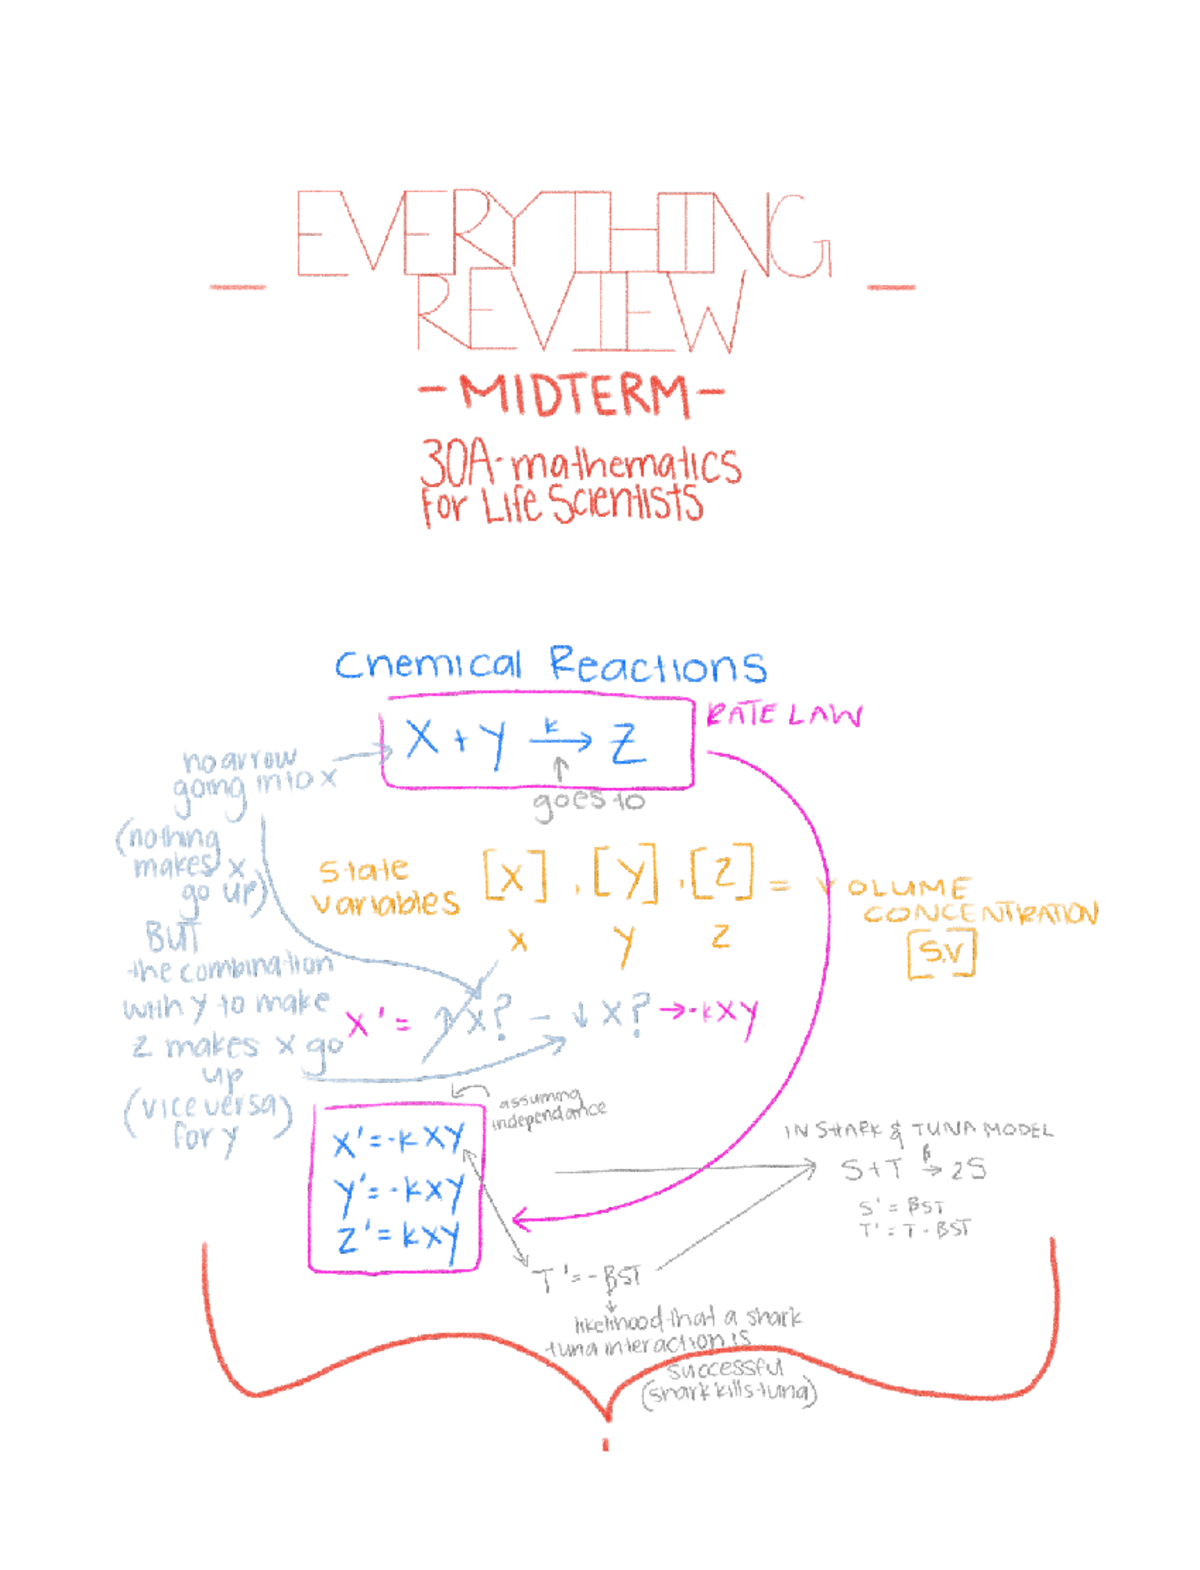 EVERYTHING
REVIEW
- MIDTERM -
30A - mathematics
For Life Scientists
Chemical Reactions
X + Y →k Z
RATE LAW
goes to
no arrow
going into x
(nothing
makes x
go up)
BUT
the combination
with y to make
z makes x go
up
(vice versa)
for y
State
variables
[X] , [Y] , [Z] = VOLUME
CONCENTRATION
x y z
[S.V]
X' = ↑X? - ↓X? → -kXY
assuming
independance
X' = -kXY
Y' = -kXY
Z' = kXY
IN SHARK & TUNA MODEL
S+T →β 2S
S' = βST
T' = T - βST
T' = -βST
likelihood that a shark
tuna interaction is
successful
(shark kills tuna)